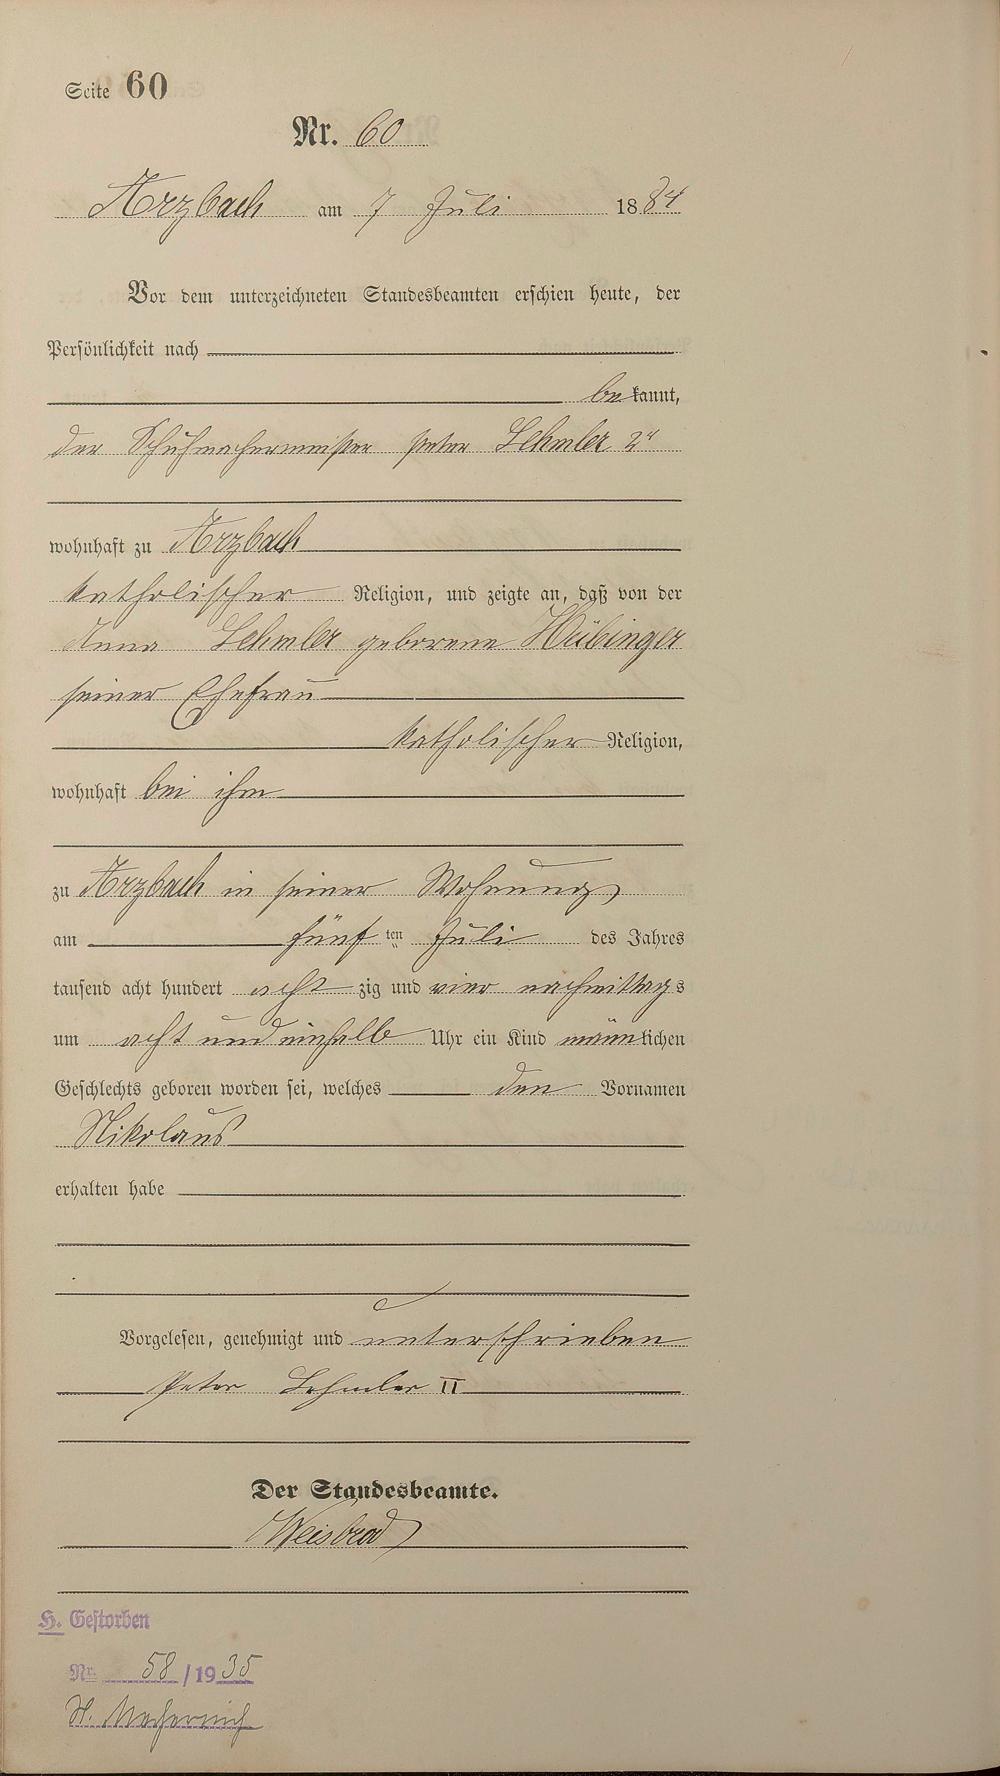 Seite 60
Nr. 60
Arzbach am 7 Juli 1884
Vor dem unterzeichneten Standesbeamten erschien heute, der
Persönlichkeit nach
bekannt,
der Schuhmachermeister Peter Lehmler 2r
wohnhaft zu Arzbach
katholischer Religion, und zeigte an, daß von der
Anna Lehmler geborene Hübinger
seiner Ehefrau
katholischer Religion,
wohnhaft bei ihm
zu Arzbach in seiner Wohnung
am fünften Juli des Jahres
tausend acht hundert achtzig und vier nachmittags
um acht und einhalb Uhr ein Kind männlichen
Geschlechts geboren worden sei, welches den Vornamen
Nikolaus
erhalten habe
Vorgelesen, genehmigt und unterschrieben
Peter Lehmler II
Der Standesbeamte.
Weisbrod
H. Gestorben
Nr. 58/1935
St. Mechernich